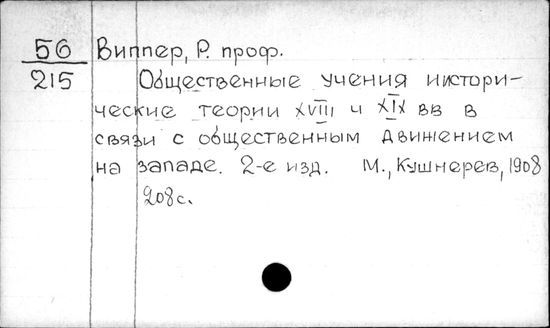 56 Виппер, Р. проф.
215 Общественные учения и истори-
ческие теории XVIII и XIX вв в
связи с общественным движением
на западе. 2-е изд. М., Кушнерев, 1908
208с.